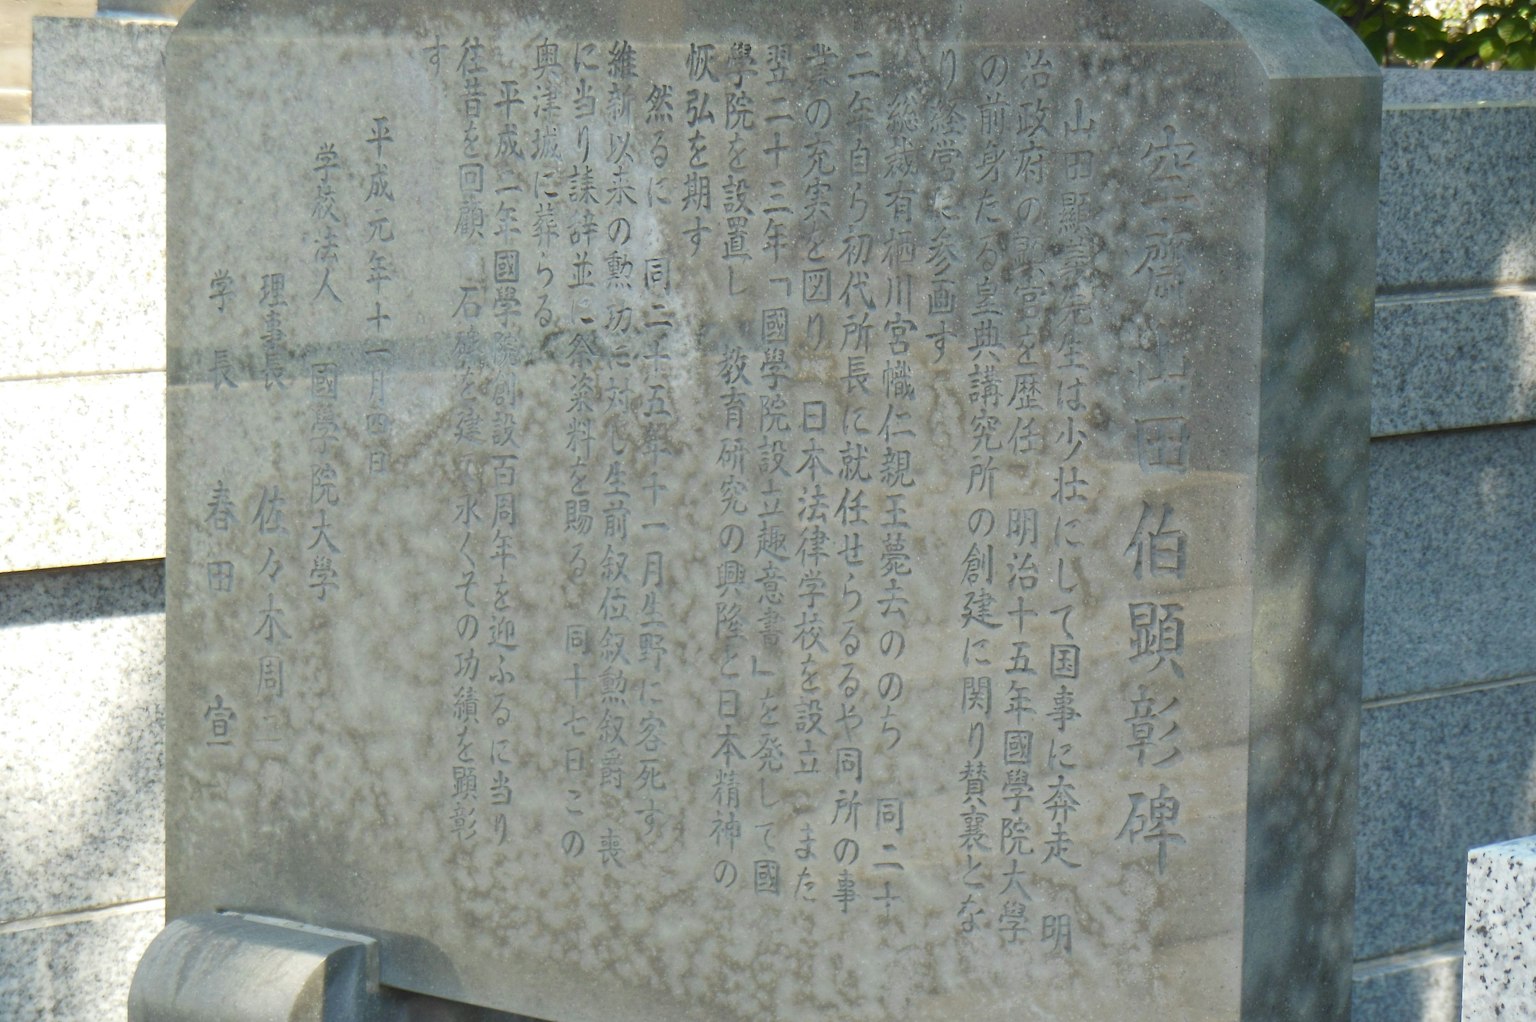 空齋山田伯顕彰碑
山田顯義先生は少壮にして国事に奔走 明
治政府の顕官を歴任 明治十五年國學院大學
の前身たる皇典講究所の創建に関り賛襄とな
り経営に参画す
総裁有栖川宮幟仁親王薨去ののち 同二十
二年自ら初代所長に就任せらるるや同所の事
業の充実を図り 日本法律学校を設立 また
翌二十三年「國學院設立趣意書」を発して國
學院を設置し 教育研究の興隆と日本精神の
恢弘を期す
然るに 同二十五年十一月生野に客死す
維新以来の勲功に対し生前叙位叙勲叙爵 喪
に当り誄辞並に祭粢料を賜る 同十七日この
奥津城に葬らる
平成二年國學院創設百周年を迎ふるに当り
往昔を回顧 石碑を建て永くその功績を顕彰
す
平成元年十一月四日
学校法人 國學院大學
理事長 佐々木周二
学長 春田 宣